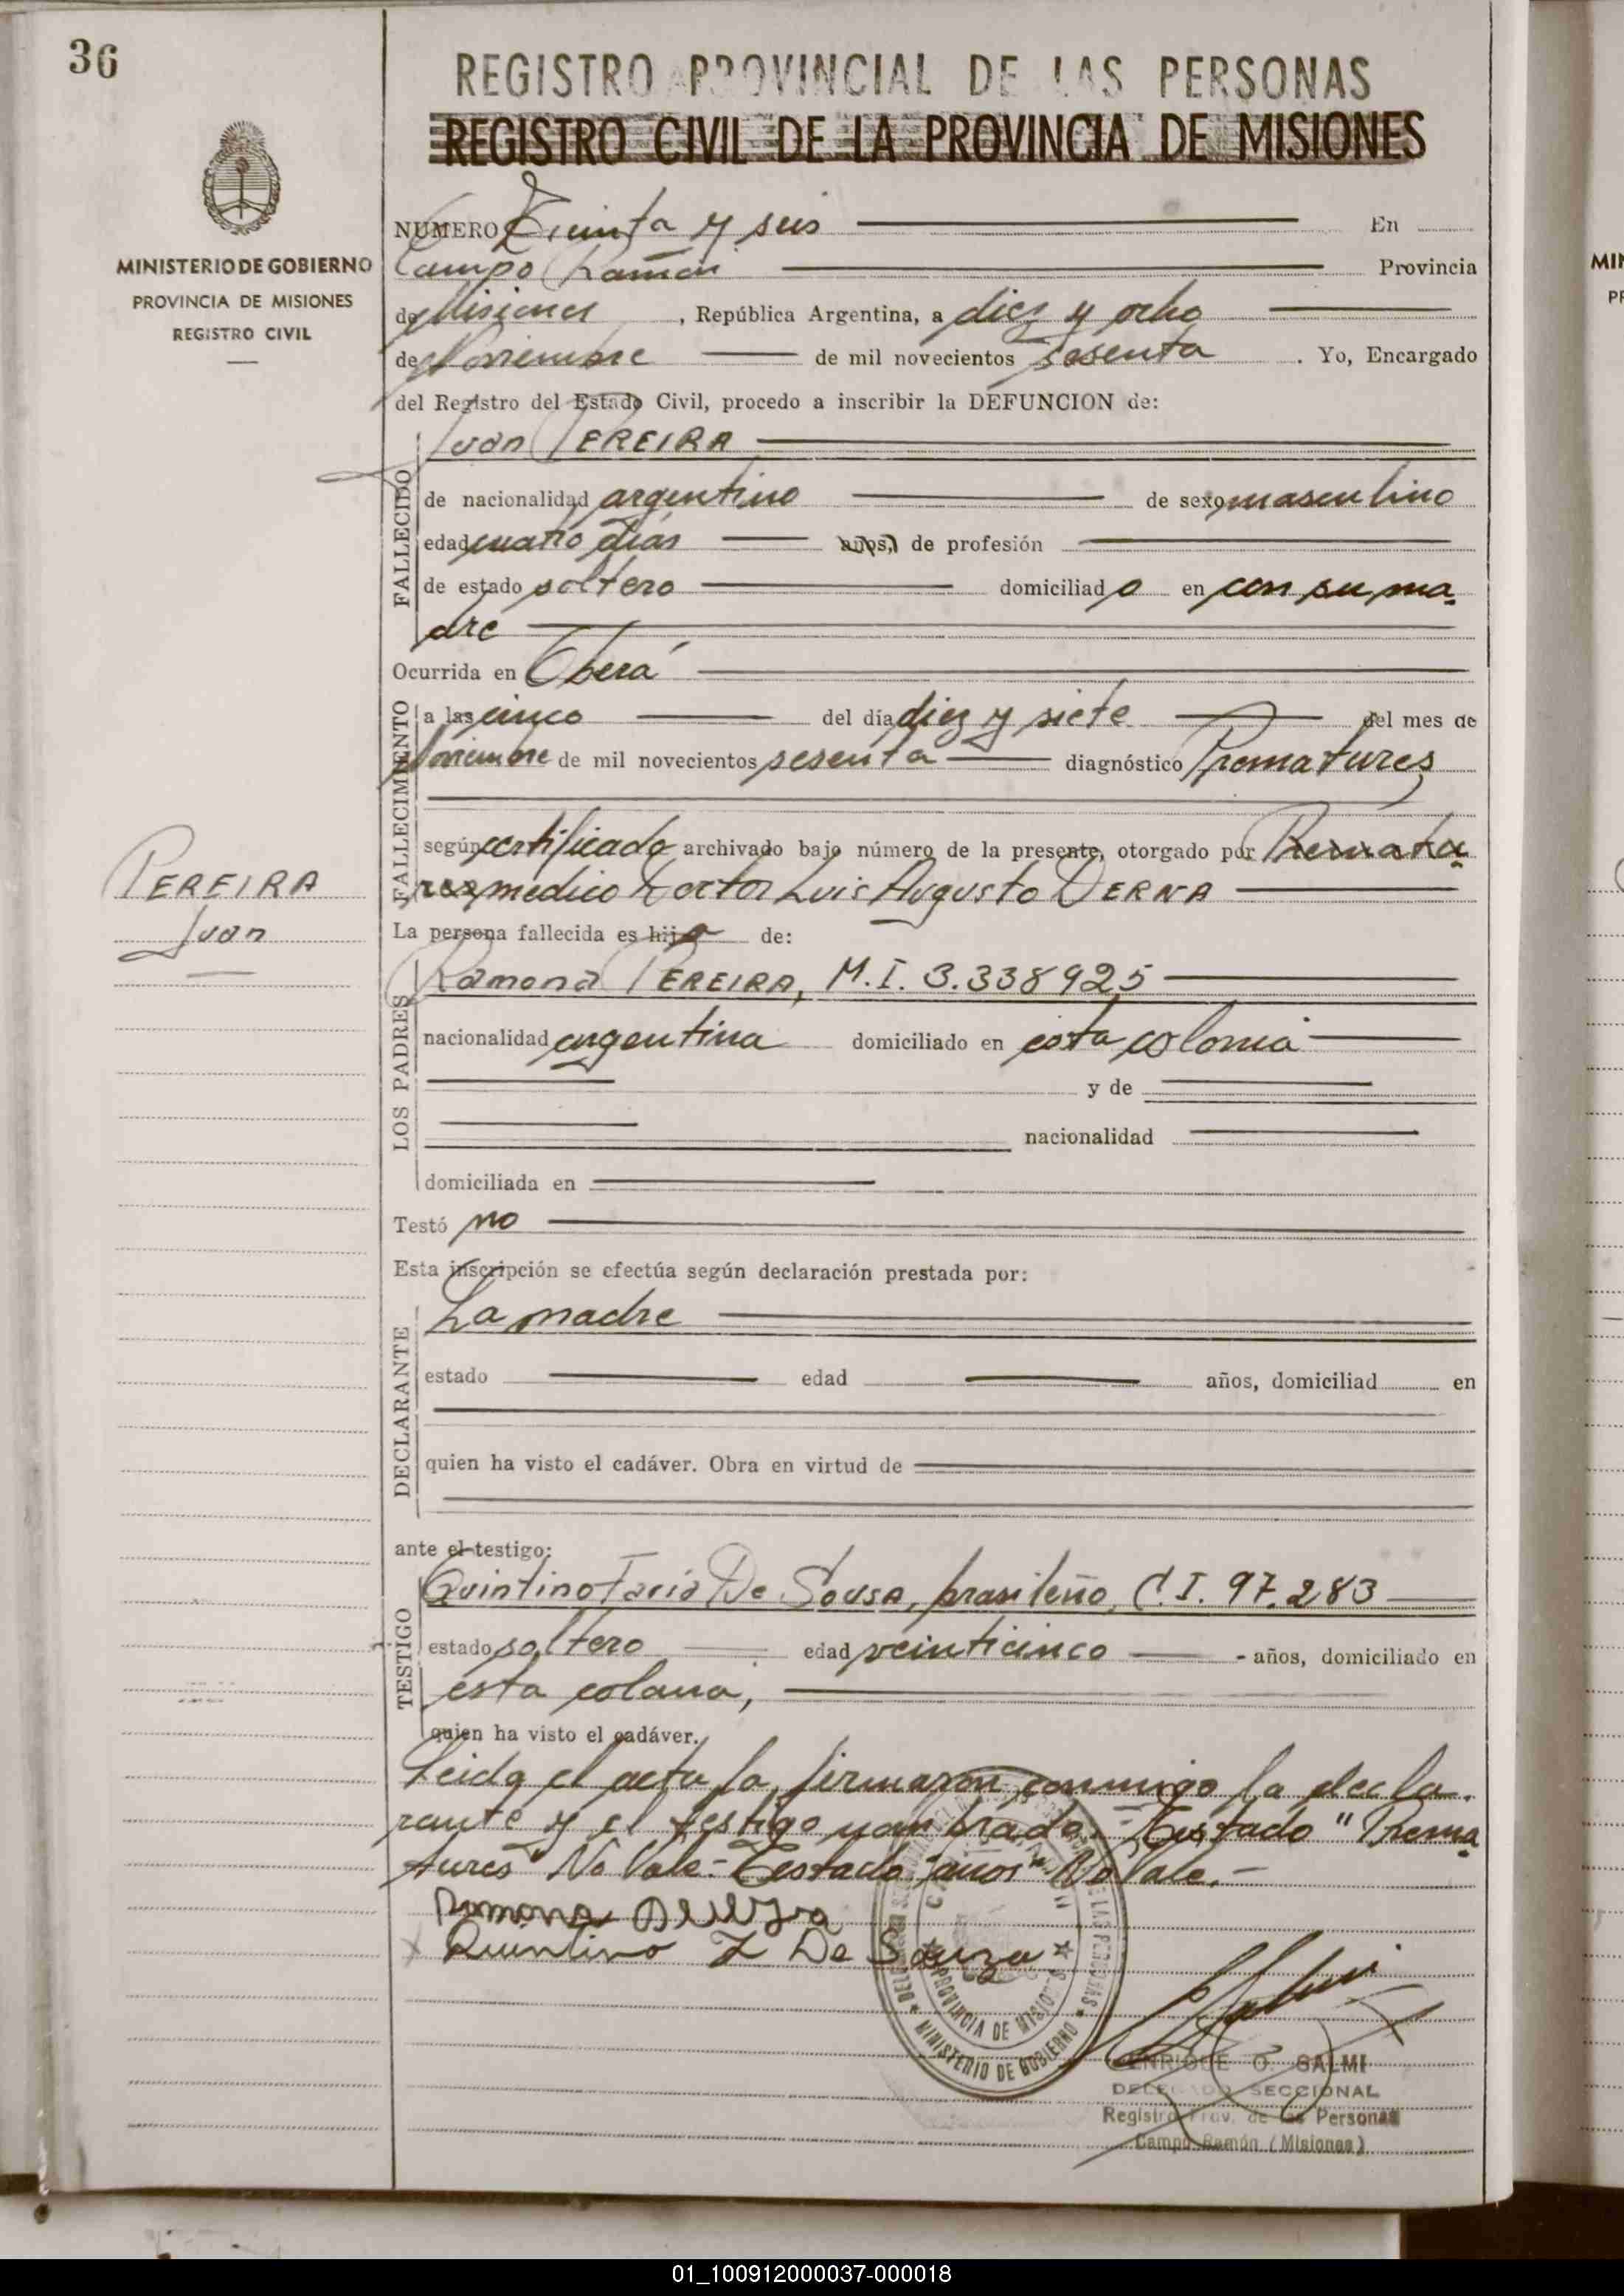 36
REGISTRO PROVINCIAL DE LAS PERSONAS
REGISTRO CIVIL DE LA PROVINCIA DE MISIONES
MINISTERIO DE GOBIERNO
PROVINCIA DE MISIONES
REGISTRO CIVIL
NUMERO Treinta y seis En
Campo Ramón Provincia
de Misiones, República Argentina, a diez y ocho
de Noviembre de mil novecientos sesenta. Yo, Encargado
del Registro del Estado Civil, procedo a inscribir la DEFUNCION de:
Juan PEREIRA
FALLECIDO
de nacionalidad argentino de sexo masculino
edad cuatro días años, de profesión
de estado soltero domiciliado en con su ma-
dre
Ocurrida en Oberá
FALLECIMIENTO
a las cinco del día diez y siete del mes de
Noviembre de mil novecientos sesenta diagnóstico Prematures
según certificado archivado bajo número de la presente, otorgado por Prematu-
res medico Doctor Luis Augusto DERNA
PEREIRA
Juan
La persona fallecida es hijo de:
LOS PADRES
Ramona PEREIRA, M.I. 3.338925
nacionalidad argentina domiciliado en esta colonia
y de
nacionalidad
domiciliada en
Testó no
Esta inscripción se efectúa según declaración prestada por:
DECLARANTE
La madre
estado edad años, domiciliad en
quien ha visto el cadáver. Obra en virtud de
ante el testigo:
TESTIGO
Quintino Faria De Sousa, brasileño, C.I. 97.283
estado soltero edad veinticinco - años, domiciliado en
esta colonia,
quien ha visto el cadáver.
Leida el acta la firmaron conmigo la decla-
rante y el testigo nombrado.- Testado "Prema-
tures" No Vale.- Testado "años" No Vale.-
Ramona
Quintino F De Souza
PROVINCIA DE MISIONES
MINISTERIO DE GOBIERNO
ENRIQUE O. SALMI
DELEGADO SECCIONAL
Registro Prov. de las Personas
Campo Ramón (Misiones)
01_100912000037-000018